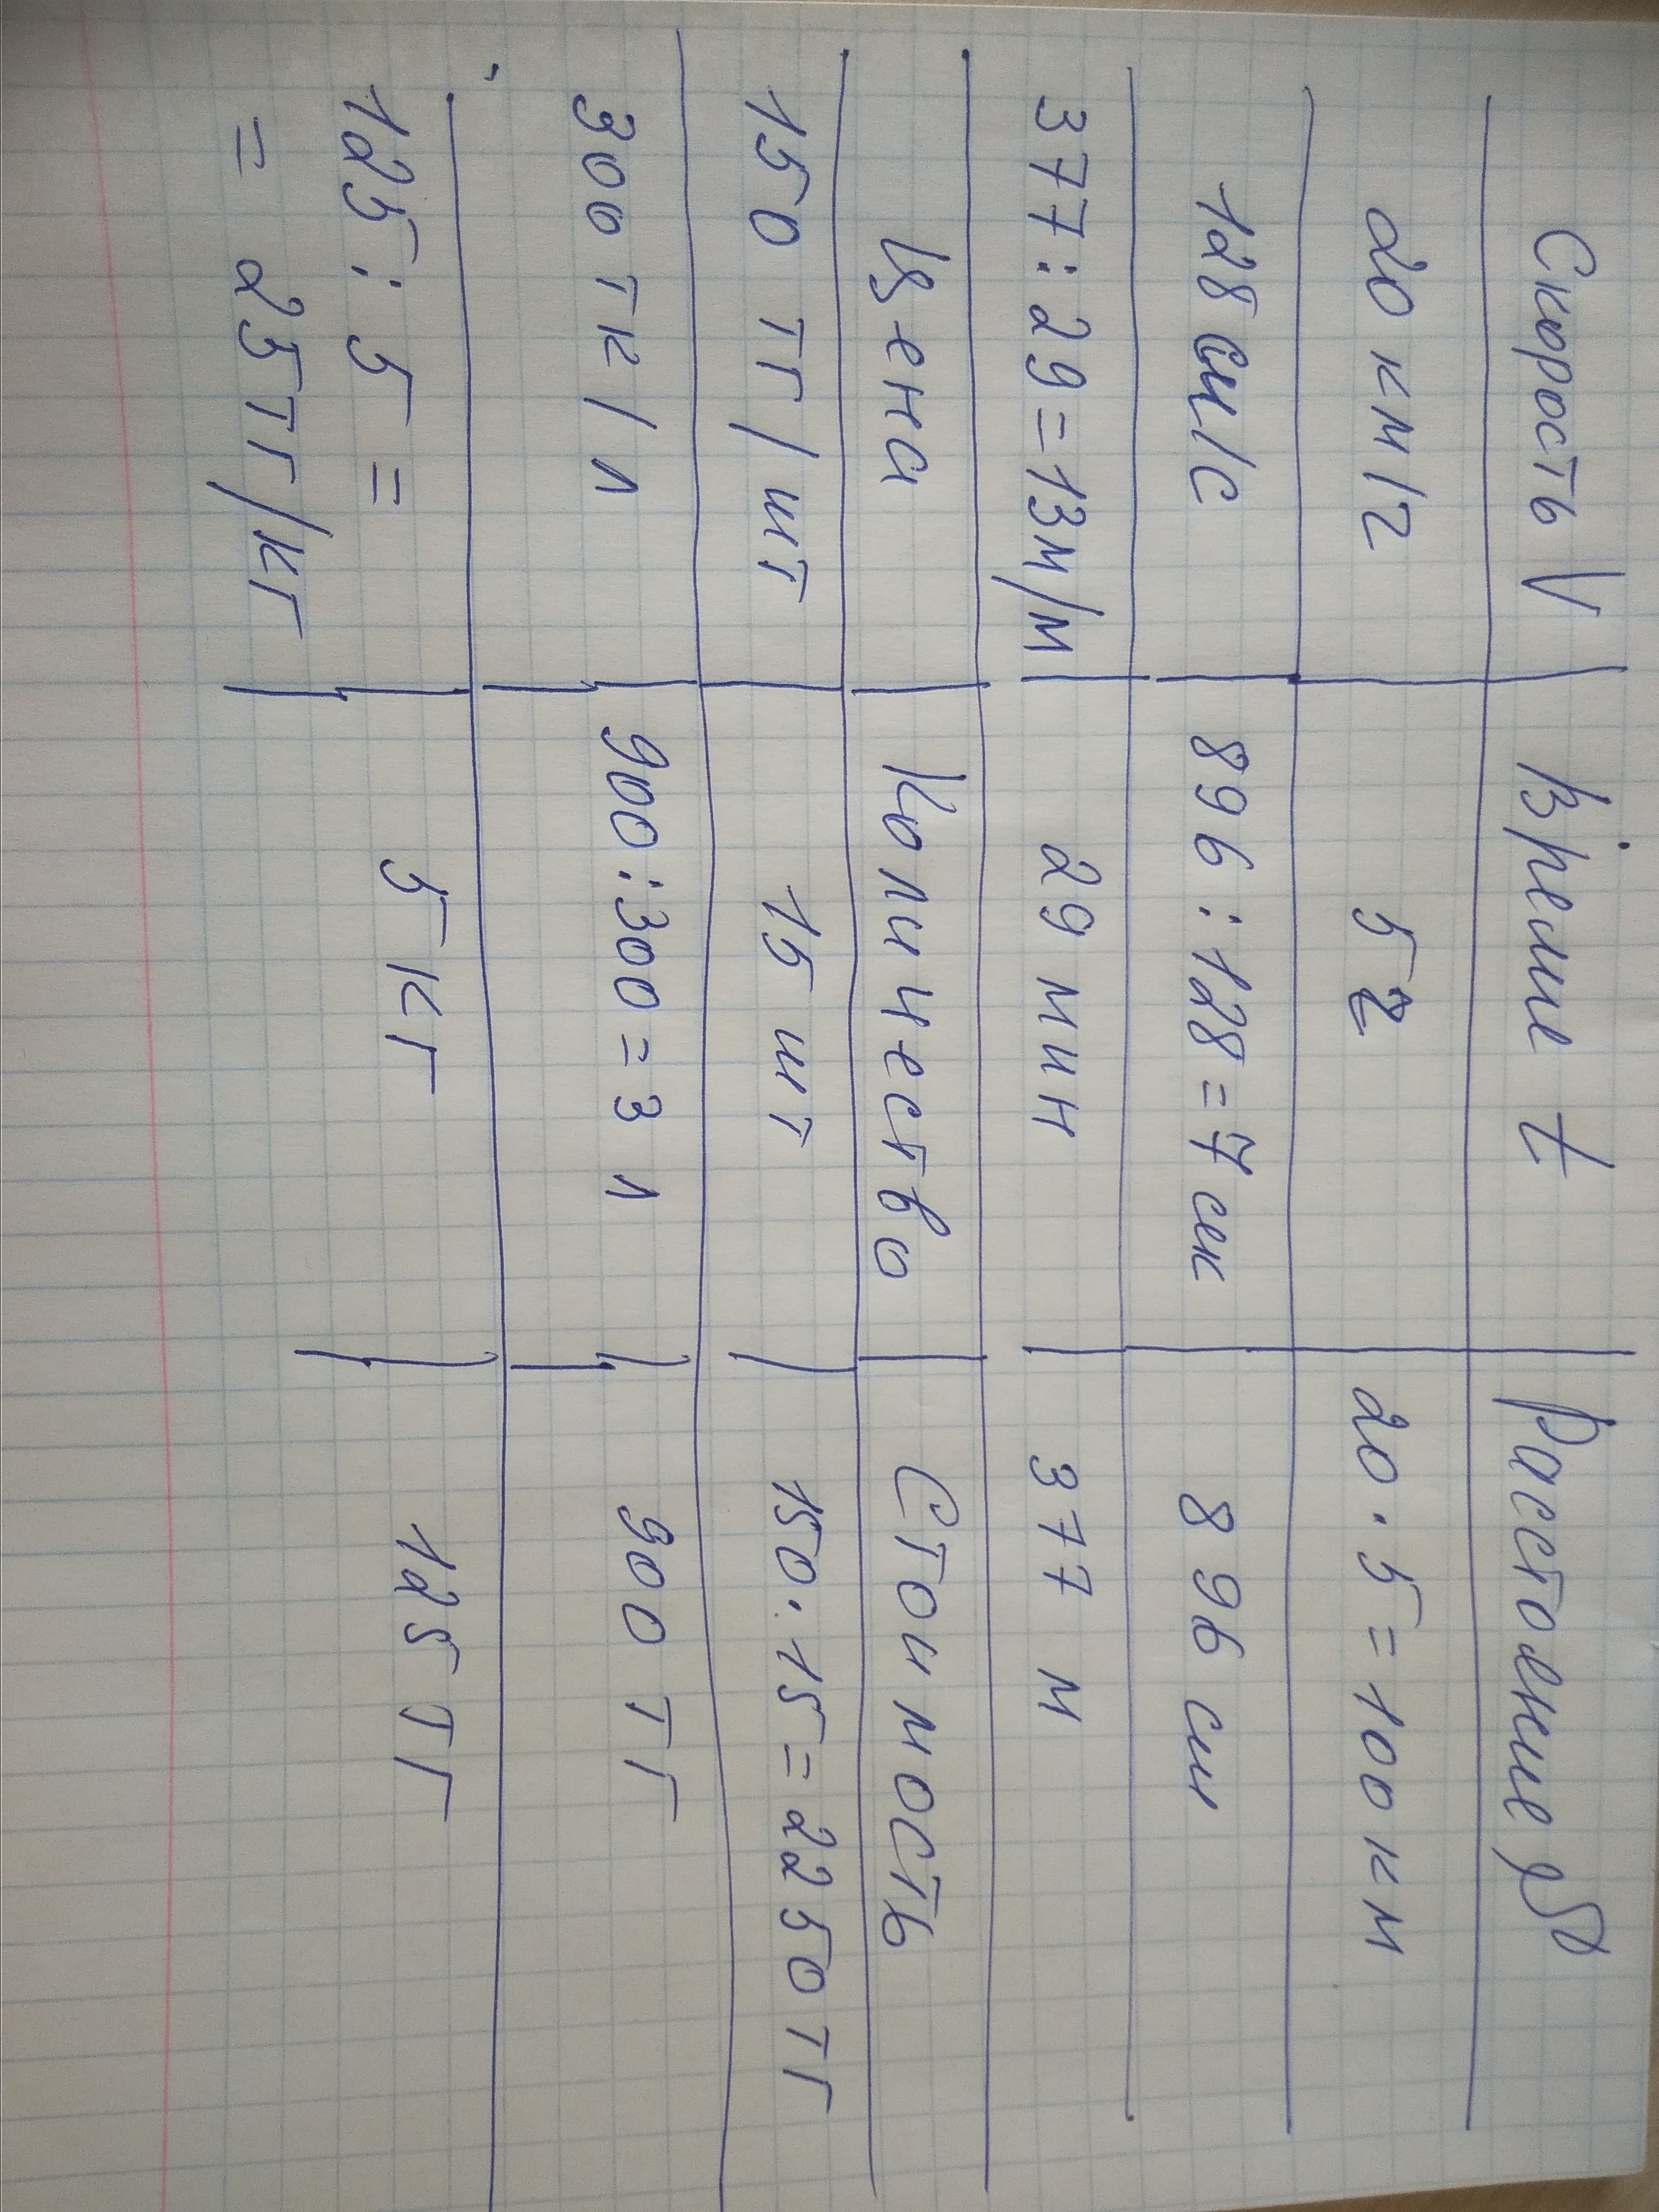 Скорость V | Время t | Растоение S
20 км/ч | 5 ч | 20 · 5 = 100 км
128 см/с | 896 : 128 = 7 сек | 896 см
377 : 29 = 13 м/м | 29 мин | 377 м
Цена | Количество | Стоимость
150 тг/шт | 15 шт | 150 · 15 = 2250 тг
300 тк/л | 900 : 300 = 3 л | 900 тг
125 : 5 = | 5 кг | 125 тг
= 25 тг/кг